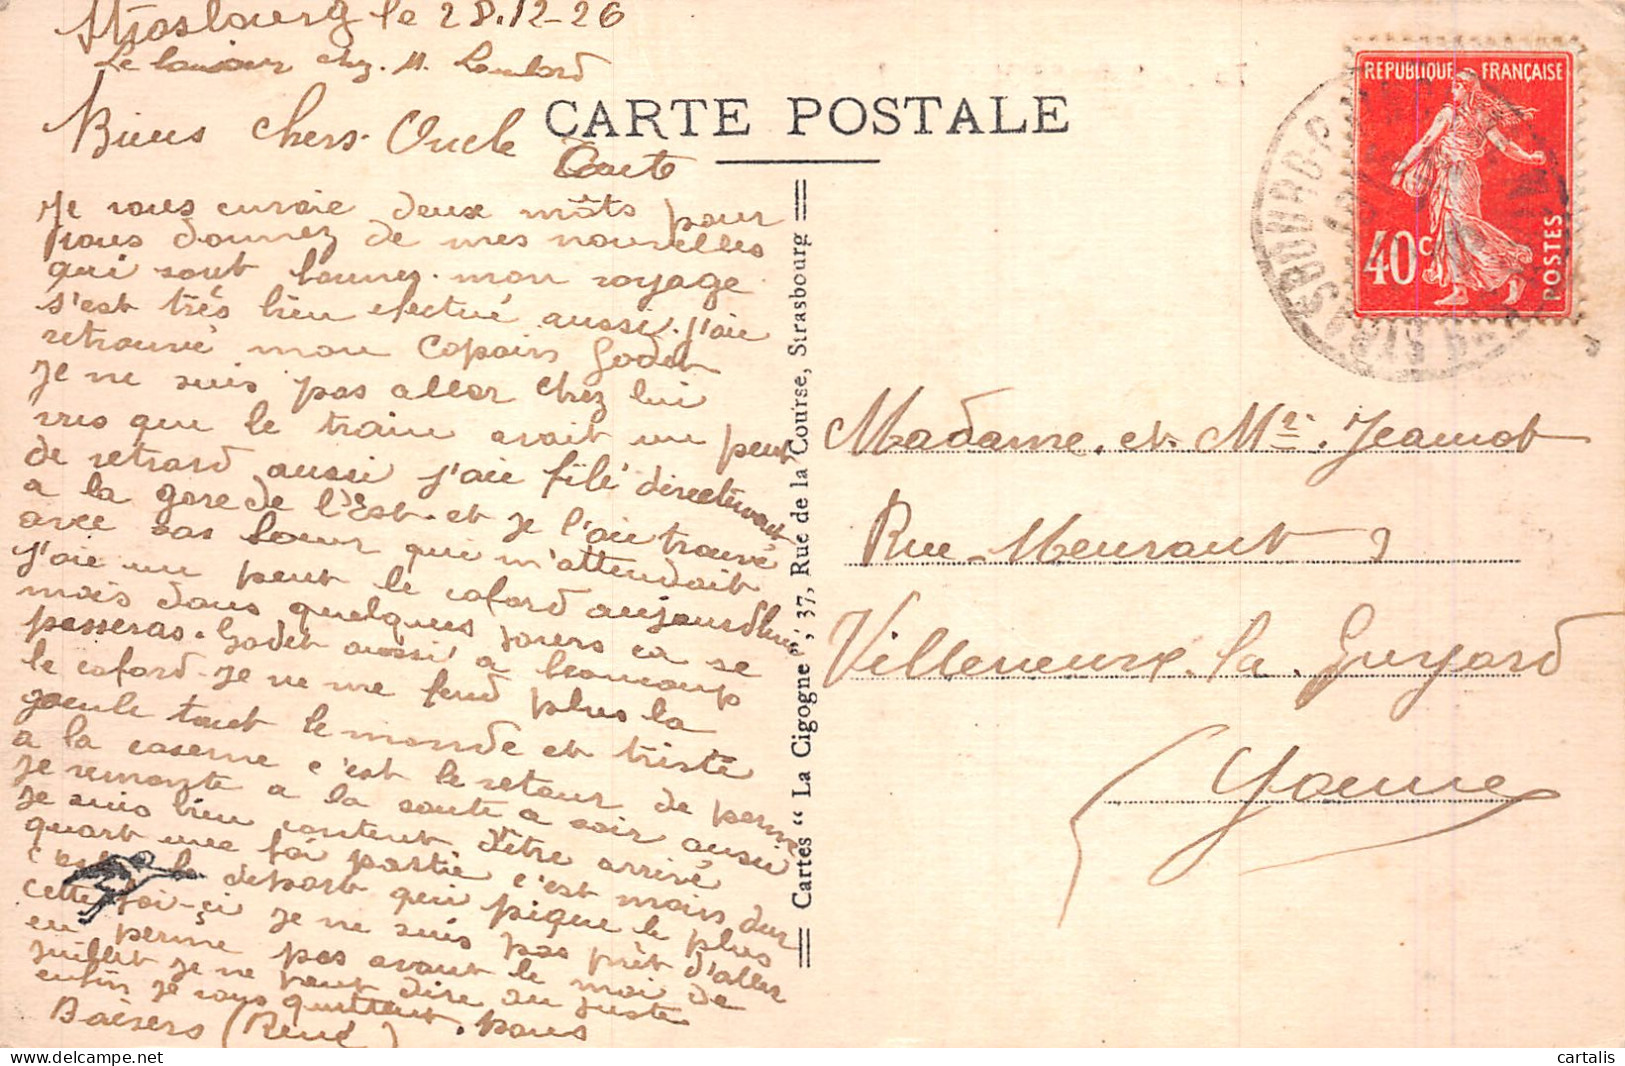 Strasbourg le 28.12-26
chez. M.
Biens chers. Oncle
Tante
CARTE POSTALE
Je vous envoie deux môts pour
vous donnez de mes nouvelles
qui sont bonnez. mon voyage
s'est très bien efectué aussi. j'aie
retrouvé mon Copain Godet
Je ne suis pas aller chez lui
vus que le train avait un peut
de retrard aussi j'aie filé directement
a la gare de l'Est. et je l'aie trouvé
avec sas soeur qui m'attendait
J'aie un peut le cafard aujourdhui
mais dans quelques jours ca se
passeras. Godet aussi a beaucoup
le cafard. Je ne me fend plus la
gueule tout le monde et triste
a la caserne c'est le retour de perme
Je remonte a la soute a soir aussi
Je suis bien content d'être arrivé
quart une foi partie c'est moins dur
c'est le depart qui pique le plus
cette foi-çi je ne suis pas prèt d'aller
en perme pas avant le moi de
juillet je ne peut dire au juste
enfin je vous quittent. vous
Baisers (René)
Cartes “ La Cigogne ”, 37, Rue de la Course, Strasbourg
REPUBLIQUE FRANÇAISE
40c
POSTES
STRASBOURG
Madame. et. Mr. Jeannot
Rue. Meurant 2
Villeneuve. la. Guyard
Yonne
cartalis